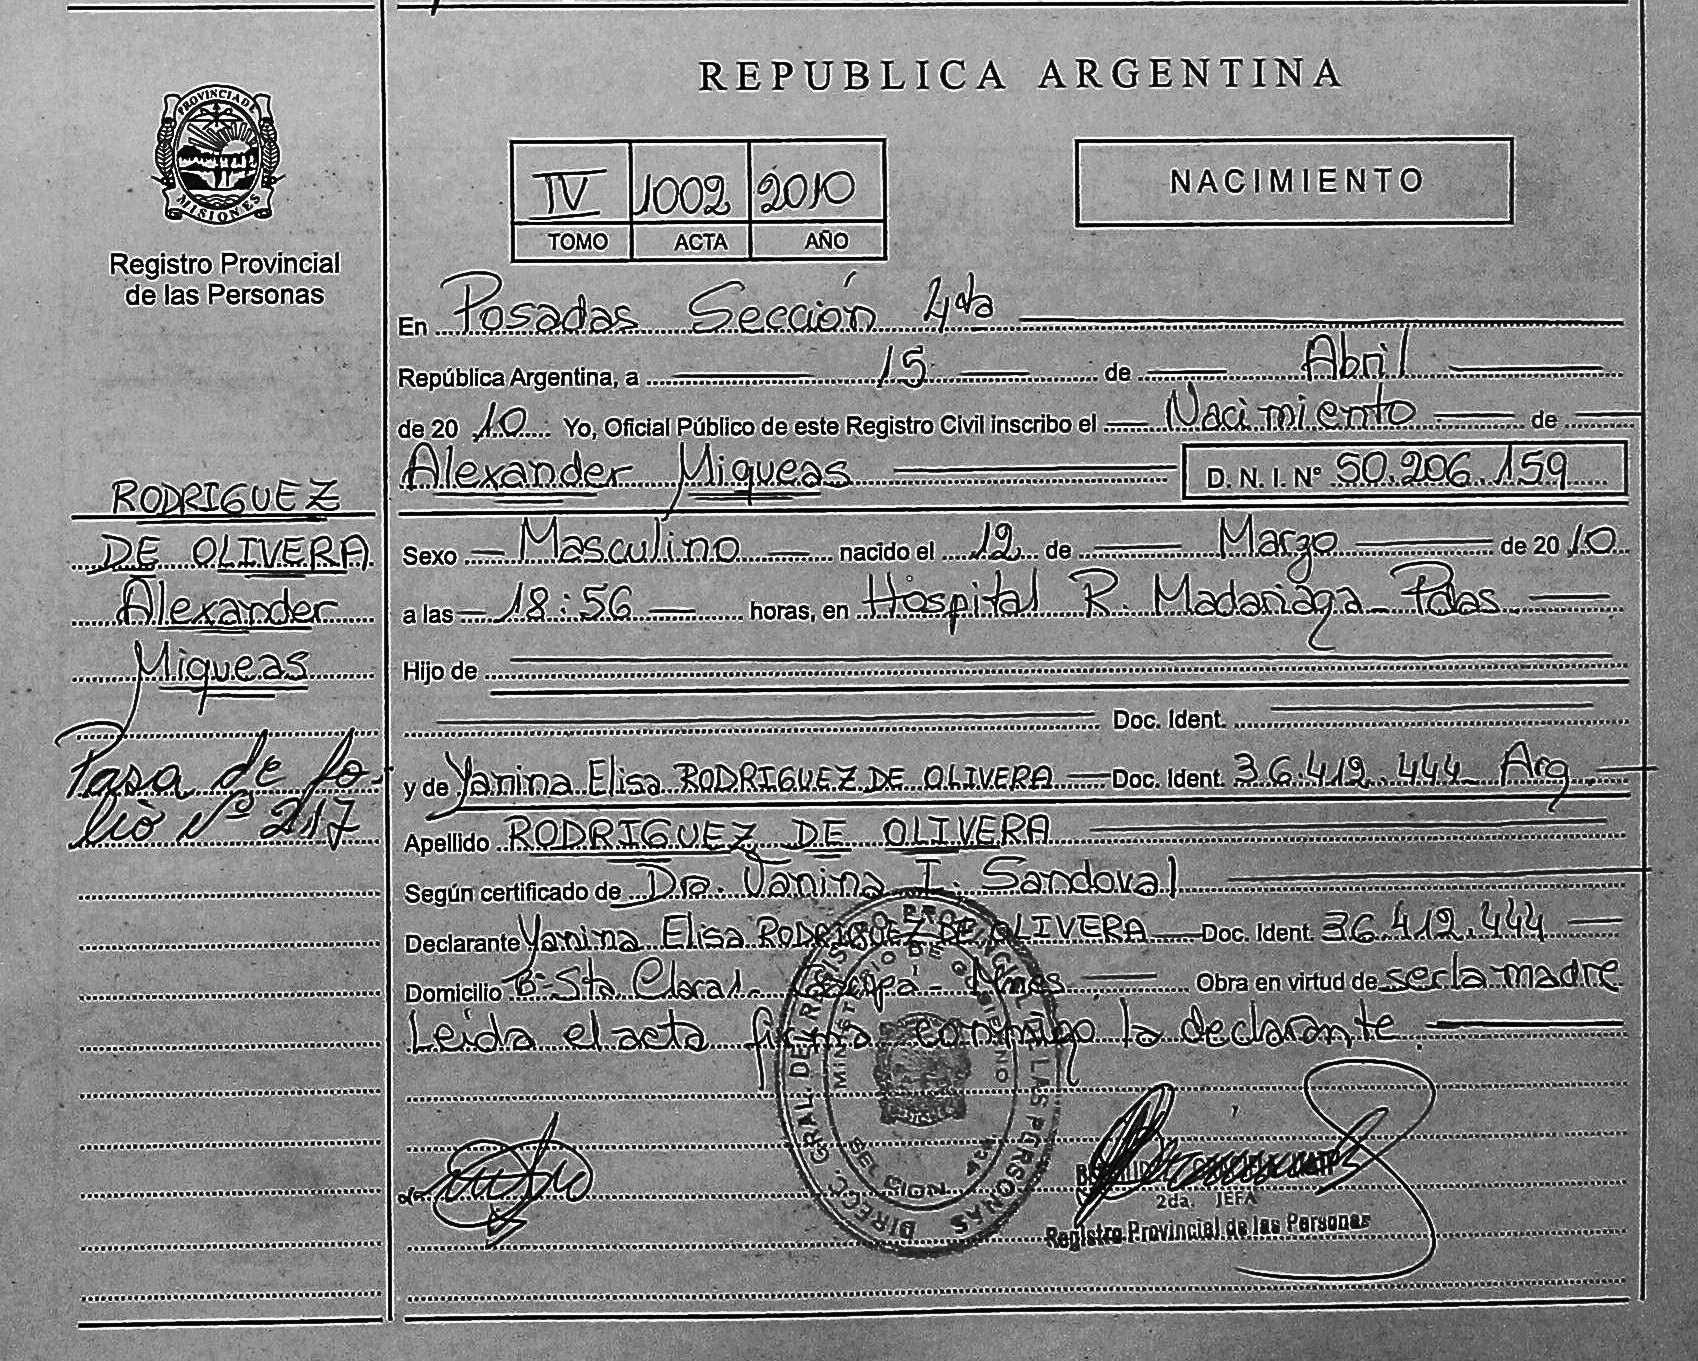 REPUBLICA ARGENTINA
PROVINCIA DE
MISIONES
Registro Provincial
de las Personas
IV 1002 2010
TOMO ACTA AÑO
NACIMIENTO
En Posadas Sección 4ta
República Argentina, a 15 de Abril
de 2010 Yo, Oficial Público de este Registro Civil inscribo el Nacimiento de
Alexander Miqueas D. N. I. Nº 50.206.159
Sexo Masculino nacido el 12 de Marzo de 2010
a las 18:56 horas, en Hospital R. Madariaga Pdas.
Hijo de
Doc. Ident.
y de Yanina Elisa RODRIGUEZ DE OLIVERA Doc. Ident. 36.412.444 Arg
Apellido RODRIGUEZ DE OLIVERA
Según certificado de Dra. Vanina I. Sandoval
Declarante Yanina Elisa RODRIGUEZ DE OLIVERA Doc. Ident. 36.412.444
Domicilio Bº Sta Clara I. Mnes Obra en virtud de ser la madre
Leída el acta firma conmigo la declarante.
RODRIGUEZ
DE OLIVERA
Alexander
Miqueas
Pasa de fo-
lio Nº 217
DIRECC. GRAL. DEL REGISTRO PROVINCIAL DE LAS PERSONAS
MINISTERIO DE GOBIERNO
2da. JEFA
Registro Provincial de las Personas